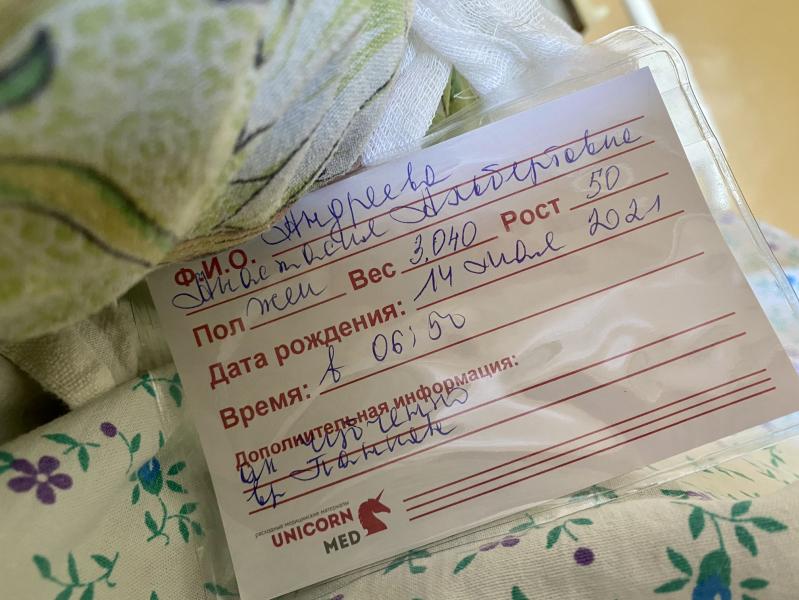 Андреева
Ф.И.О. Анастасия Альбертовна
Пол жен Вес 3,040 Рост 50
Дата рождения: 14 мая 2021
Время: в 06:50
Дополнительная информация:
ак
вр
расходные медицинские материалы
UNICORN
MED